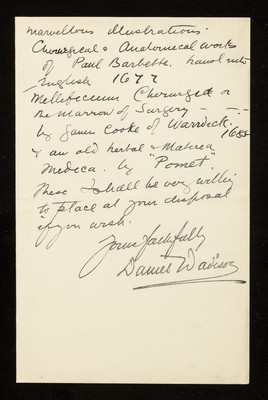 marvellous illustrations.
Chirurgical & Anatomical works
of Paul Barbette. transl into
English 1677
Mellificium Chirurgia or
the Marrow of Surgery
by James Cooke of Warwick. 1685
& an old herbal & Materia
Medica. by "Pomet"
These I shall be very willing
to place at your disposal
if you wish.
Yours faithfully
Daniel